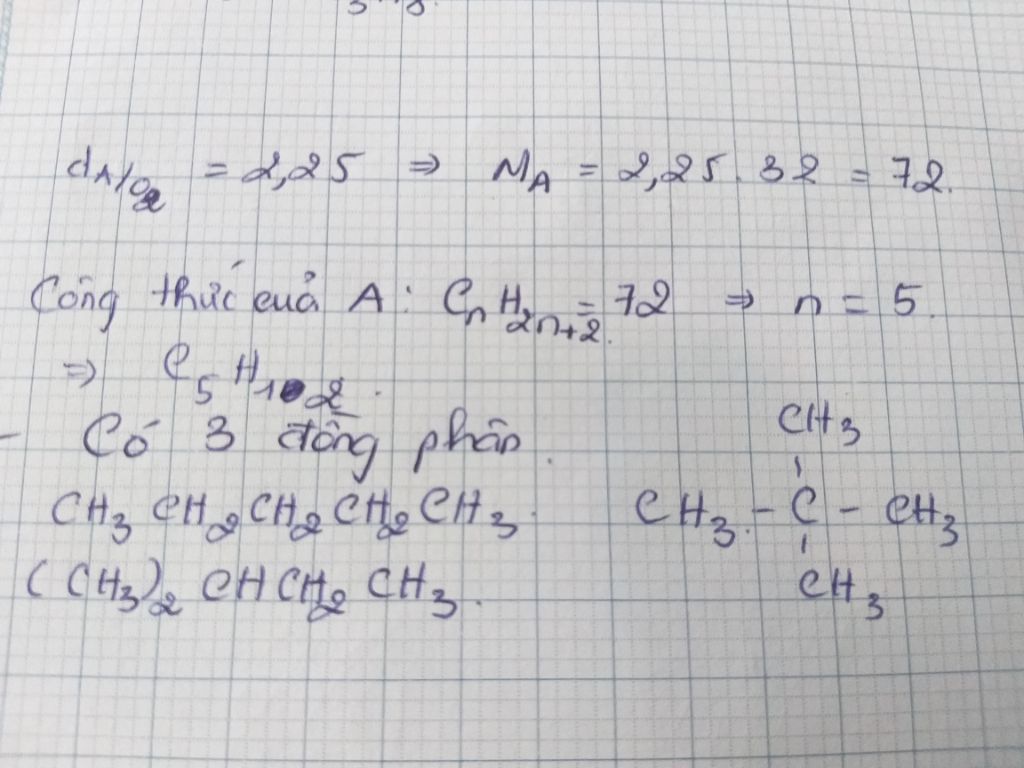 d A/O2 = 2,25 ⇒ MA = 2,25. 32 = 72.
Công thức cuả A: CnH2n+2 = 72 ⇒ n = 5.
⇒ C5H12.
- Có 3 đồng phân.
CH3
CH3 CH2 CH2 CH2 CH3. CH3 - C - CH3
(CH3)2 CH CH2 CH3. CH3